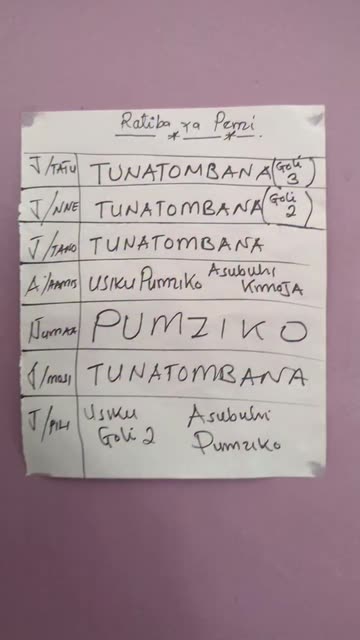 Ratiba ya Penzi.
J/TATU TUNATOMBANA (Goli 3)
J/NNE TUNATOMBANA (Goli 2)
J/TANO TUNATOMBANA
A/HAMIS USIKU PUMZIKO Asubuhi KIMOJA
IJUMAA PUMZIKO
J/MOSI TUNATOMBANA
J/PILI Usiku Goli 2 Asubuhi Pumziko